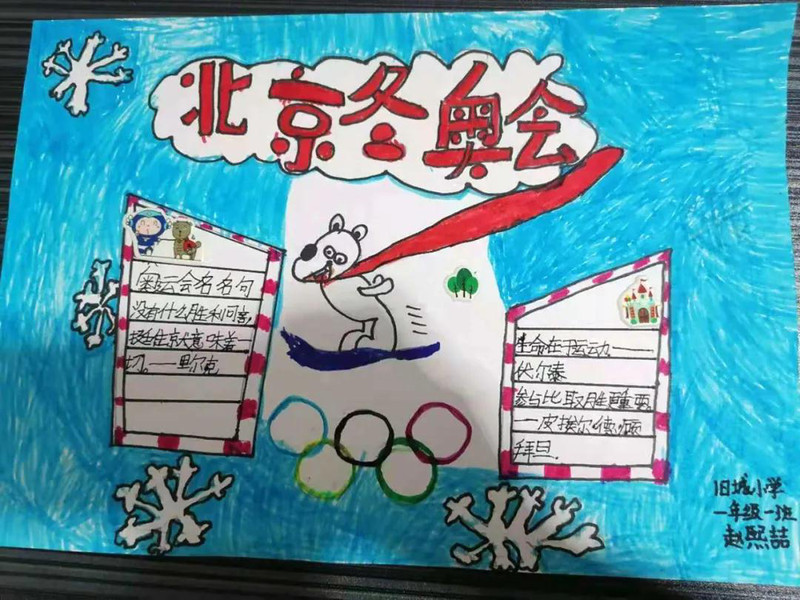 北京冬奥会
奥运会名名句
没有什么胜利可言,
挺住意味着一
切。——里尔克
生命在于运动——
伏尔泰
参与比取胜更重要
—皮埃尔德顾
拜旦.
旧城小学
一年级一班
赵熙喆